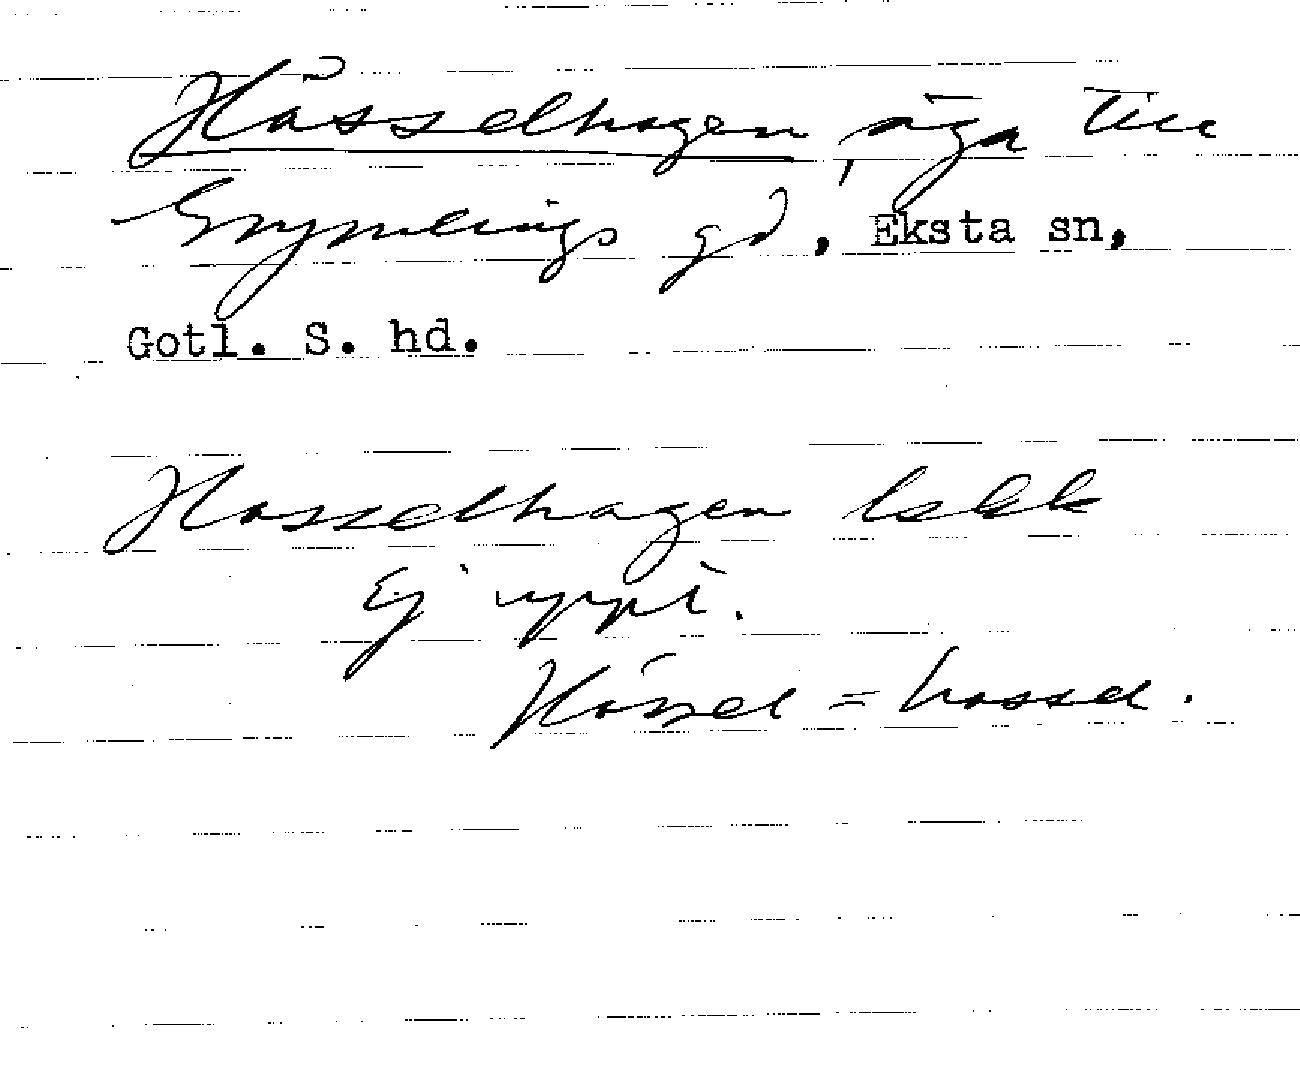 Hässelhagen, äga till
Grymlings gd, Eksta sn,
Gotl. S. hd.
Hasselhagen lskk
Ej uppt.
Hässel = hassel.